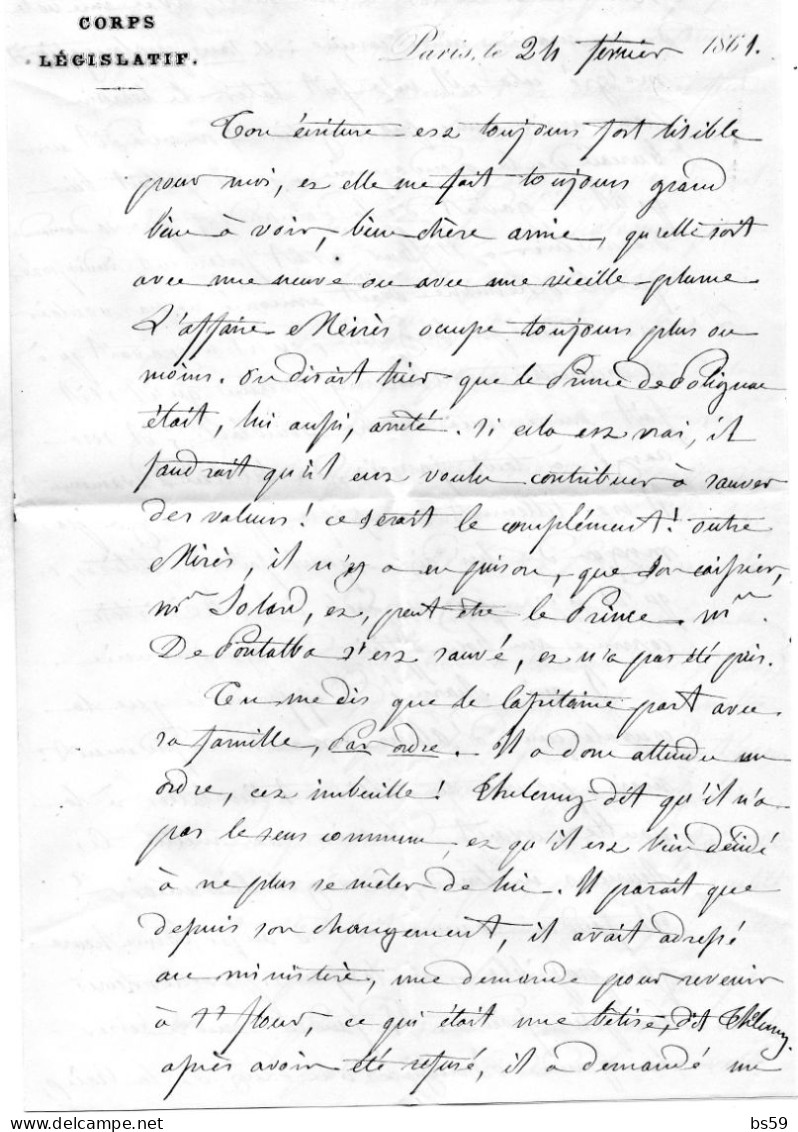 CORPS
LÉGISLATIF.
Paris, le 24 février 1861.
Ton écriture est toujours fort lisible
pour moi, et elle me fait toujours grand
bien à voir, bien chère amie, qu'elle soit
avec une neuve ou avec une vieille plume
L'affaire Meirès ocupe toujours plus ou
moins. On disait hier que le Prince de Polignac
était, lui aussi, arrêté. Si cela est vrai, il
faudrait qu'il eut voulu contribuer à sauver
des valeurs! ce serait le complément! outre
Mirès, il n'y a en prison, que son caissier,
Mr Solard, et, peut être le Prince. Mr
De Pontalba s'est sauvé, et n'a pas été pris.
Tu me dis que le Capitaine part avec
sa famille, par ordre. Il a donc attendu un
ordre, cet imbecille! Thelemy dit qu'il n'a
pas le sens commun, et qu'il est bien décidé
à ne plus se mêler de lui. Il parait que
depuis son changement, il avait adressé
au ministère, une demande pour revenir
à St flour, ce qui était une bêtise, dit Thelemy.
après avoir été refusé, il a demandé un
bs59